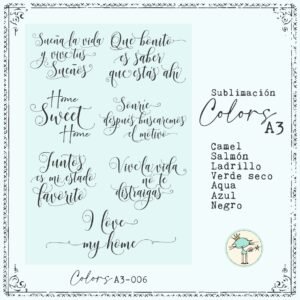 Sueña la vida
y vive tus
Sueños
Que bonito
es saber
que estas ahí
Home
Sweet
Home
Sonríe
después buscaremos
el motivo
Juntos
es mi estado
favorito
Vive la vida
no te
distraigas
I love
my home
Sublimación
Colors
A3
Camel
Salmón
Ladrillo
Verde seco
Aqua
Azul
Negro
Colors A3-006